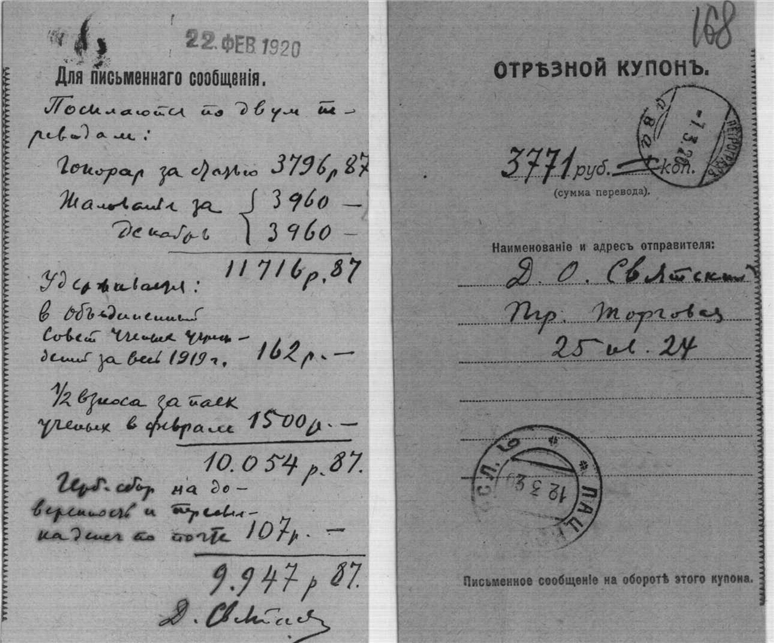 22 ФЕВ 1920
Для письменнаго сообщенiя.
Посылаются по двум пе-
реводам:
Гонорар за статью 3796 р 87
Жалованье за { 3960 —
Декабрь { 3960 —
11716 р. 87
Удерживается:
в Объединенный
Совет Ученых учреж-
дений за весь 1919 г. 162 р. —
1/2 взноса за паек
ученых в феврале 1500 р. —
10.054 р. 87.
Герб. сбор на до-
веренность и пересыл-
ка денег по почте 107 р. —
9.947 р 87.
Д. Святский
168
ОТРѢЗНОЙ КУПОНЪ.
ПЕТРОГРАДЪ
-7.3.20
3771 руб. — коп.
(сумма перевода).
Наименованiе и адресъ отправителя:
Д. О. Святский
Птр. Торговая
25 кв. 24
12.3.20
Письменное сообщенiе на оборотѣ этого купона.